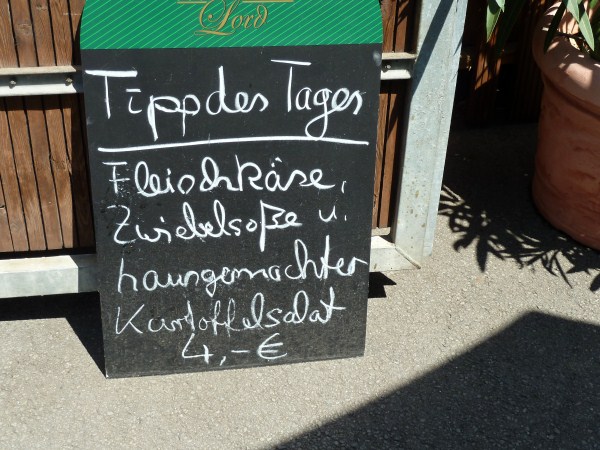 Lord
Tipp des Tages
Fleischkäse,
Zwiebelsoße u.
hausgemachter
Kartoffelsalat
4,- €